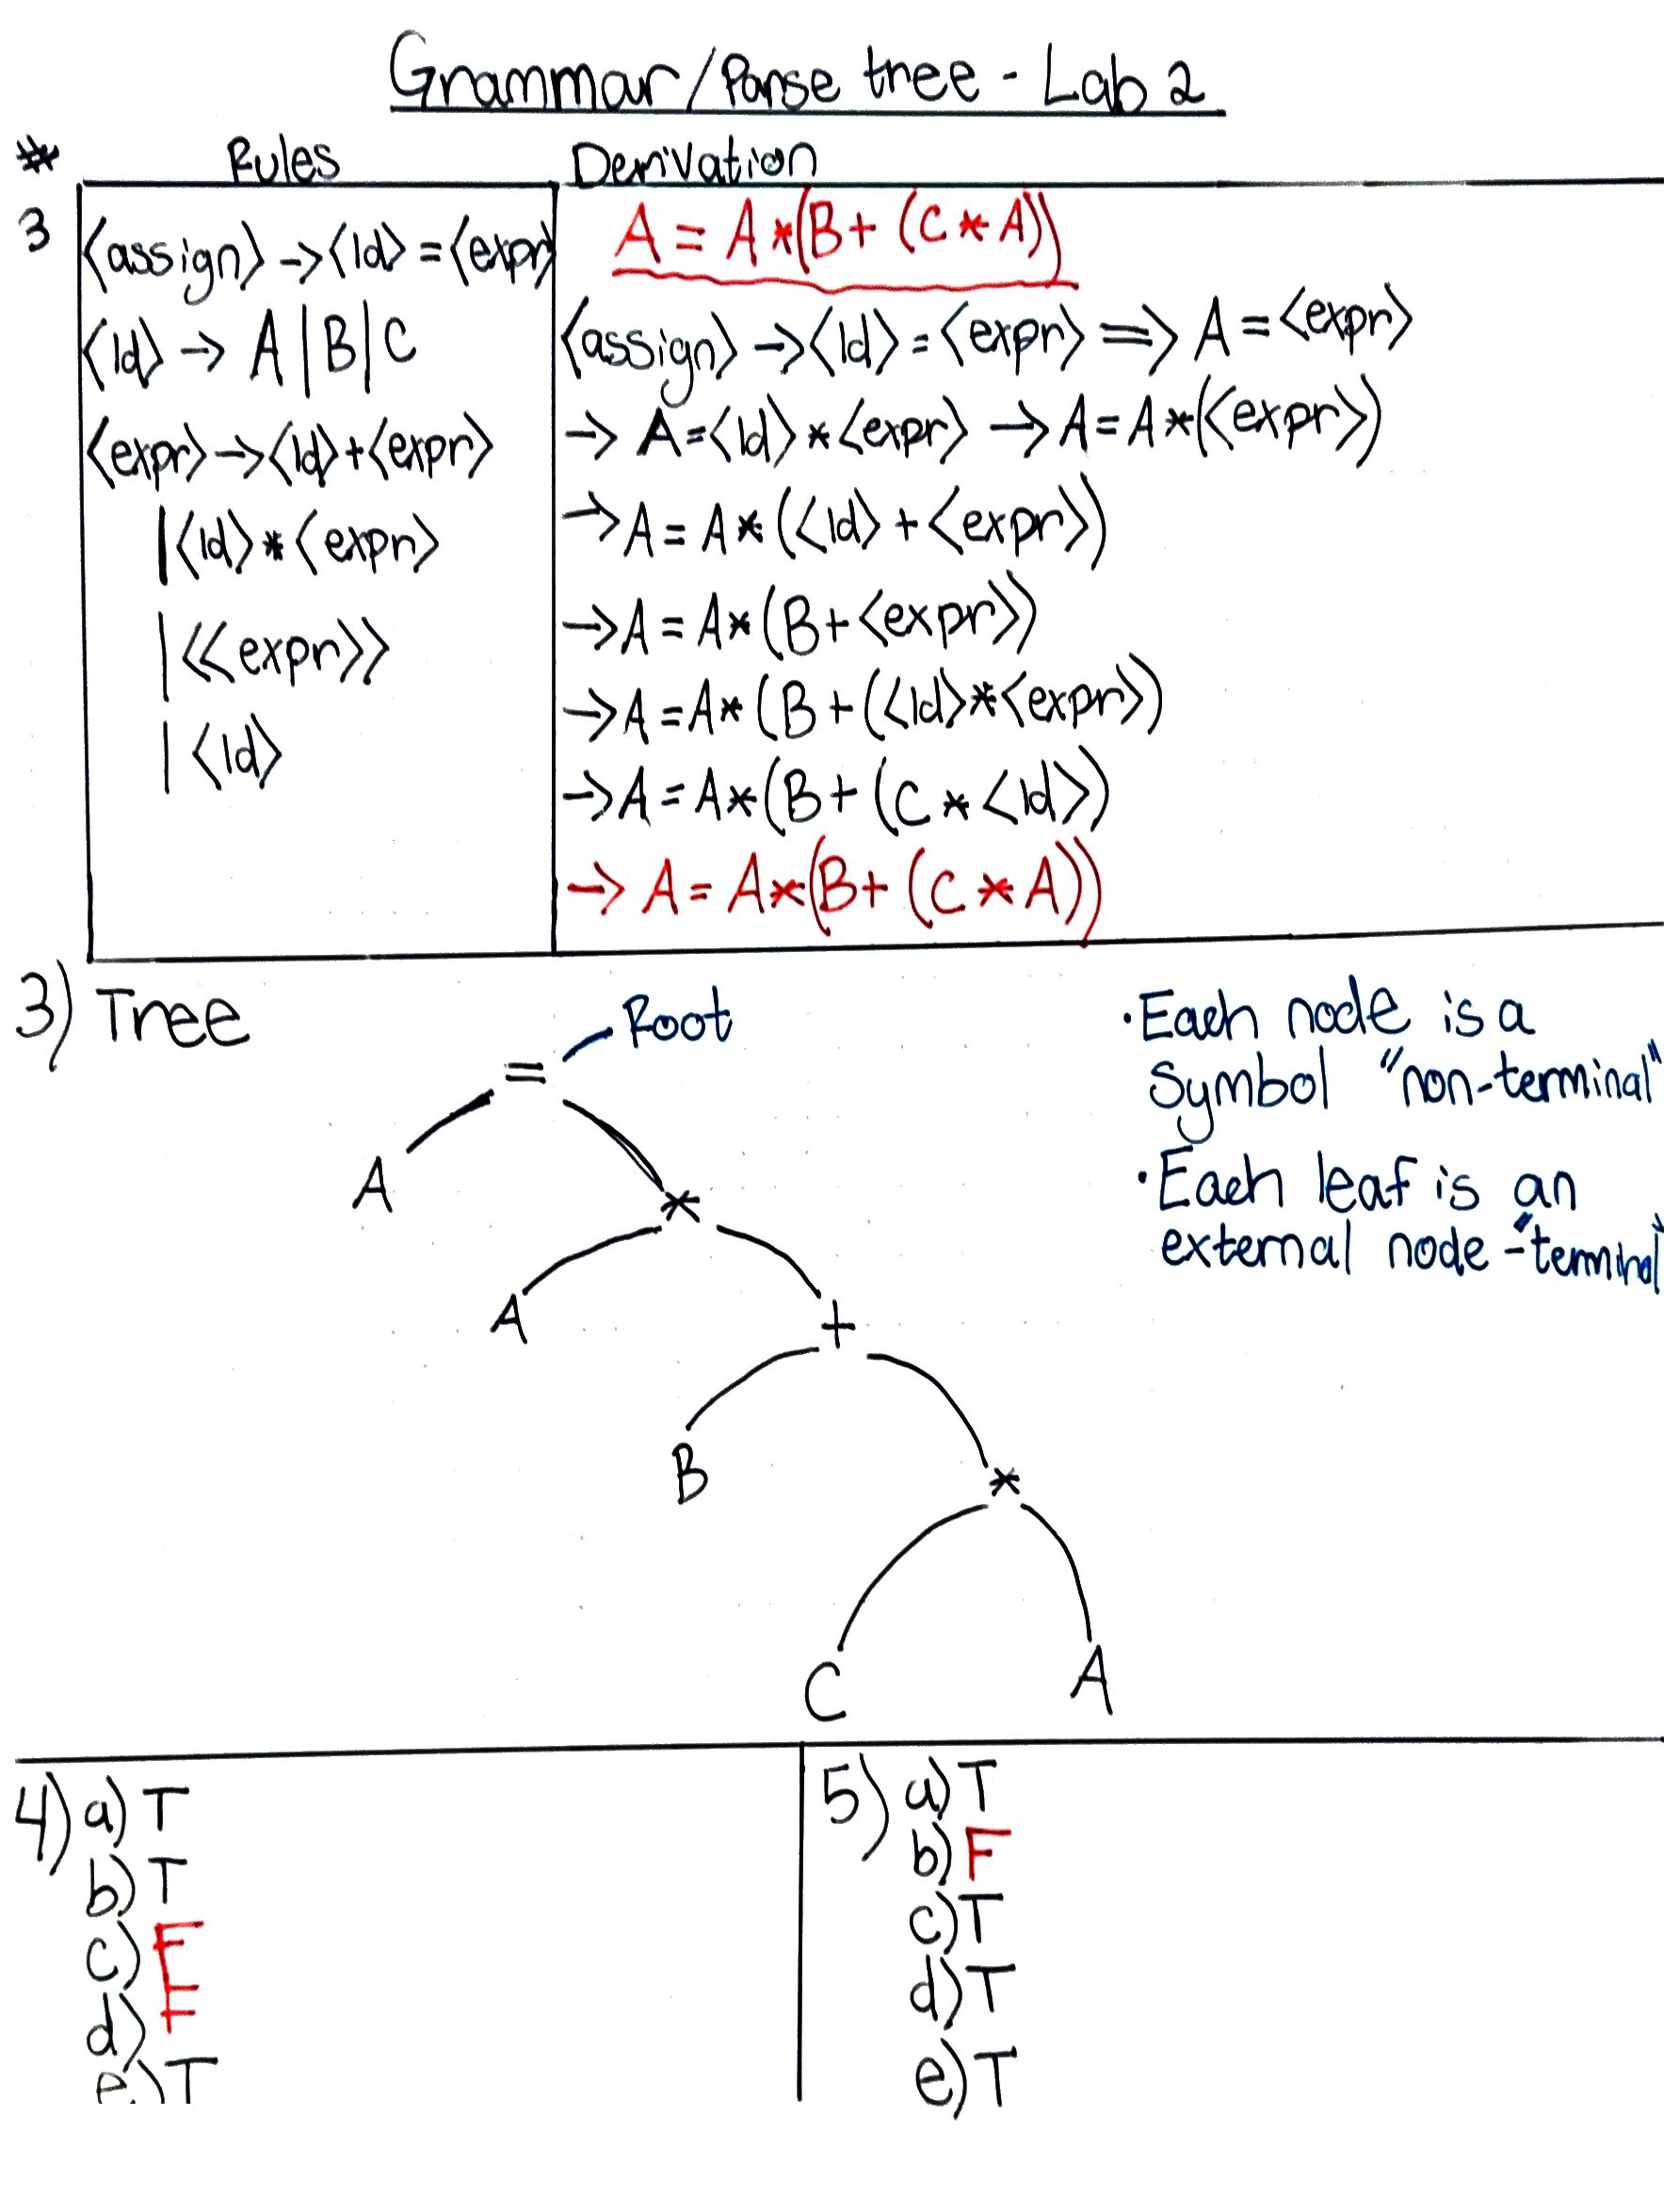 Grammar/Parse tree - Lab 2
# Rules Derivation
3
<assign> -> <Id> = <expr>
<Id> -> A | B | C
<expr> -> <Id> + <expr>
| <Id> * <expr>
| <<expr>>
| <Id>
A = A * (B + (C * A))
<assign> -> <Id> = <expr> => A = <expr>
-> A = <Id> * <expr> -> A = A * (<expr>)
-> A = A * (<Id> + <expr>)
-> A = A * (B + <expr>)
-> A = A * (B + (<Id> * <expr>)
-> A = A * (B + (C * <Id>)
-> A = A * (B + (C * A))
3) Tree
Root
=
A
*
A
+
B
*
C A
• Each node is a
symbol "non-terminal"
• Each leaf is an
external node - "terminal"
4) a) T
b) T
c) F
d) F
e) T
5) a) T
b) F
c) T
d) T
e) T